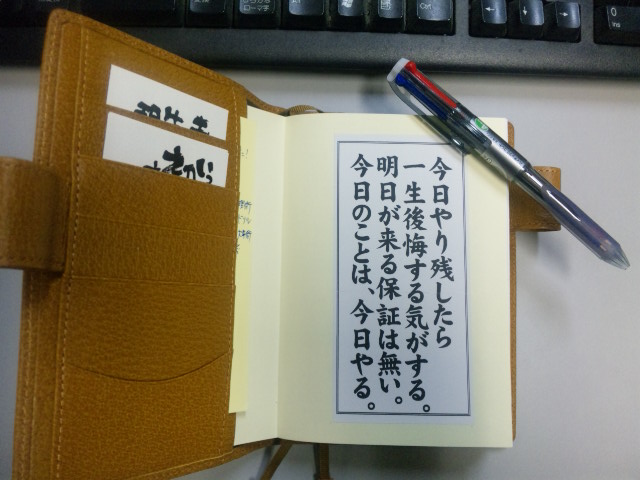 今日やり残したら
一生後悔する気がする。
明日が来る保証は無い。
今日のことは、今日やる。